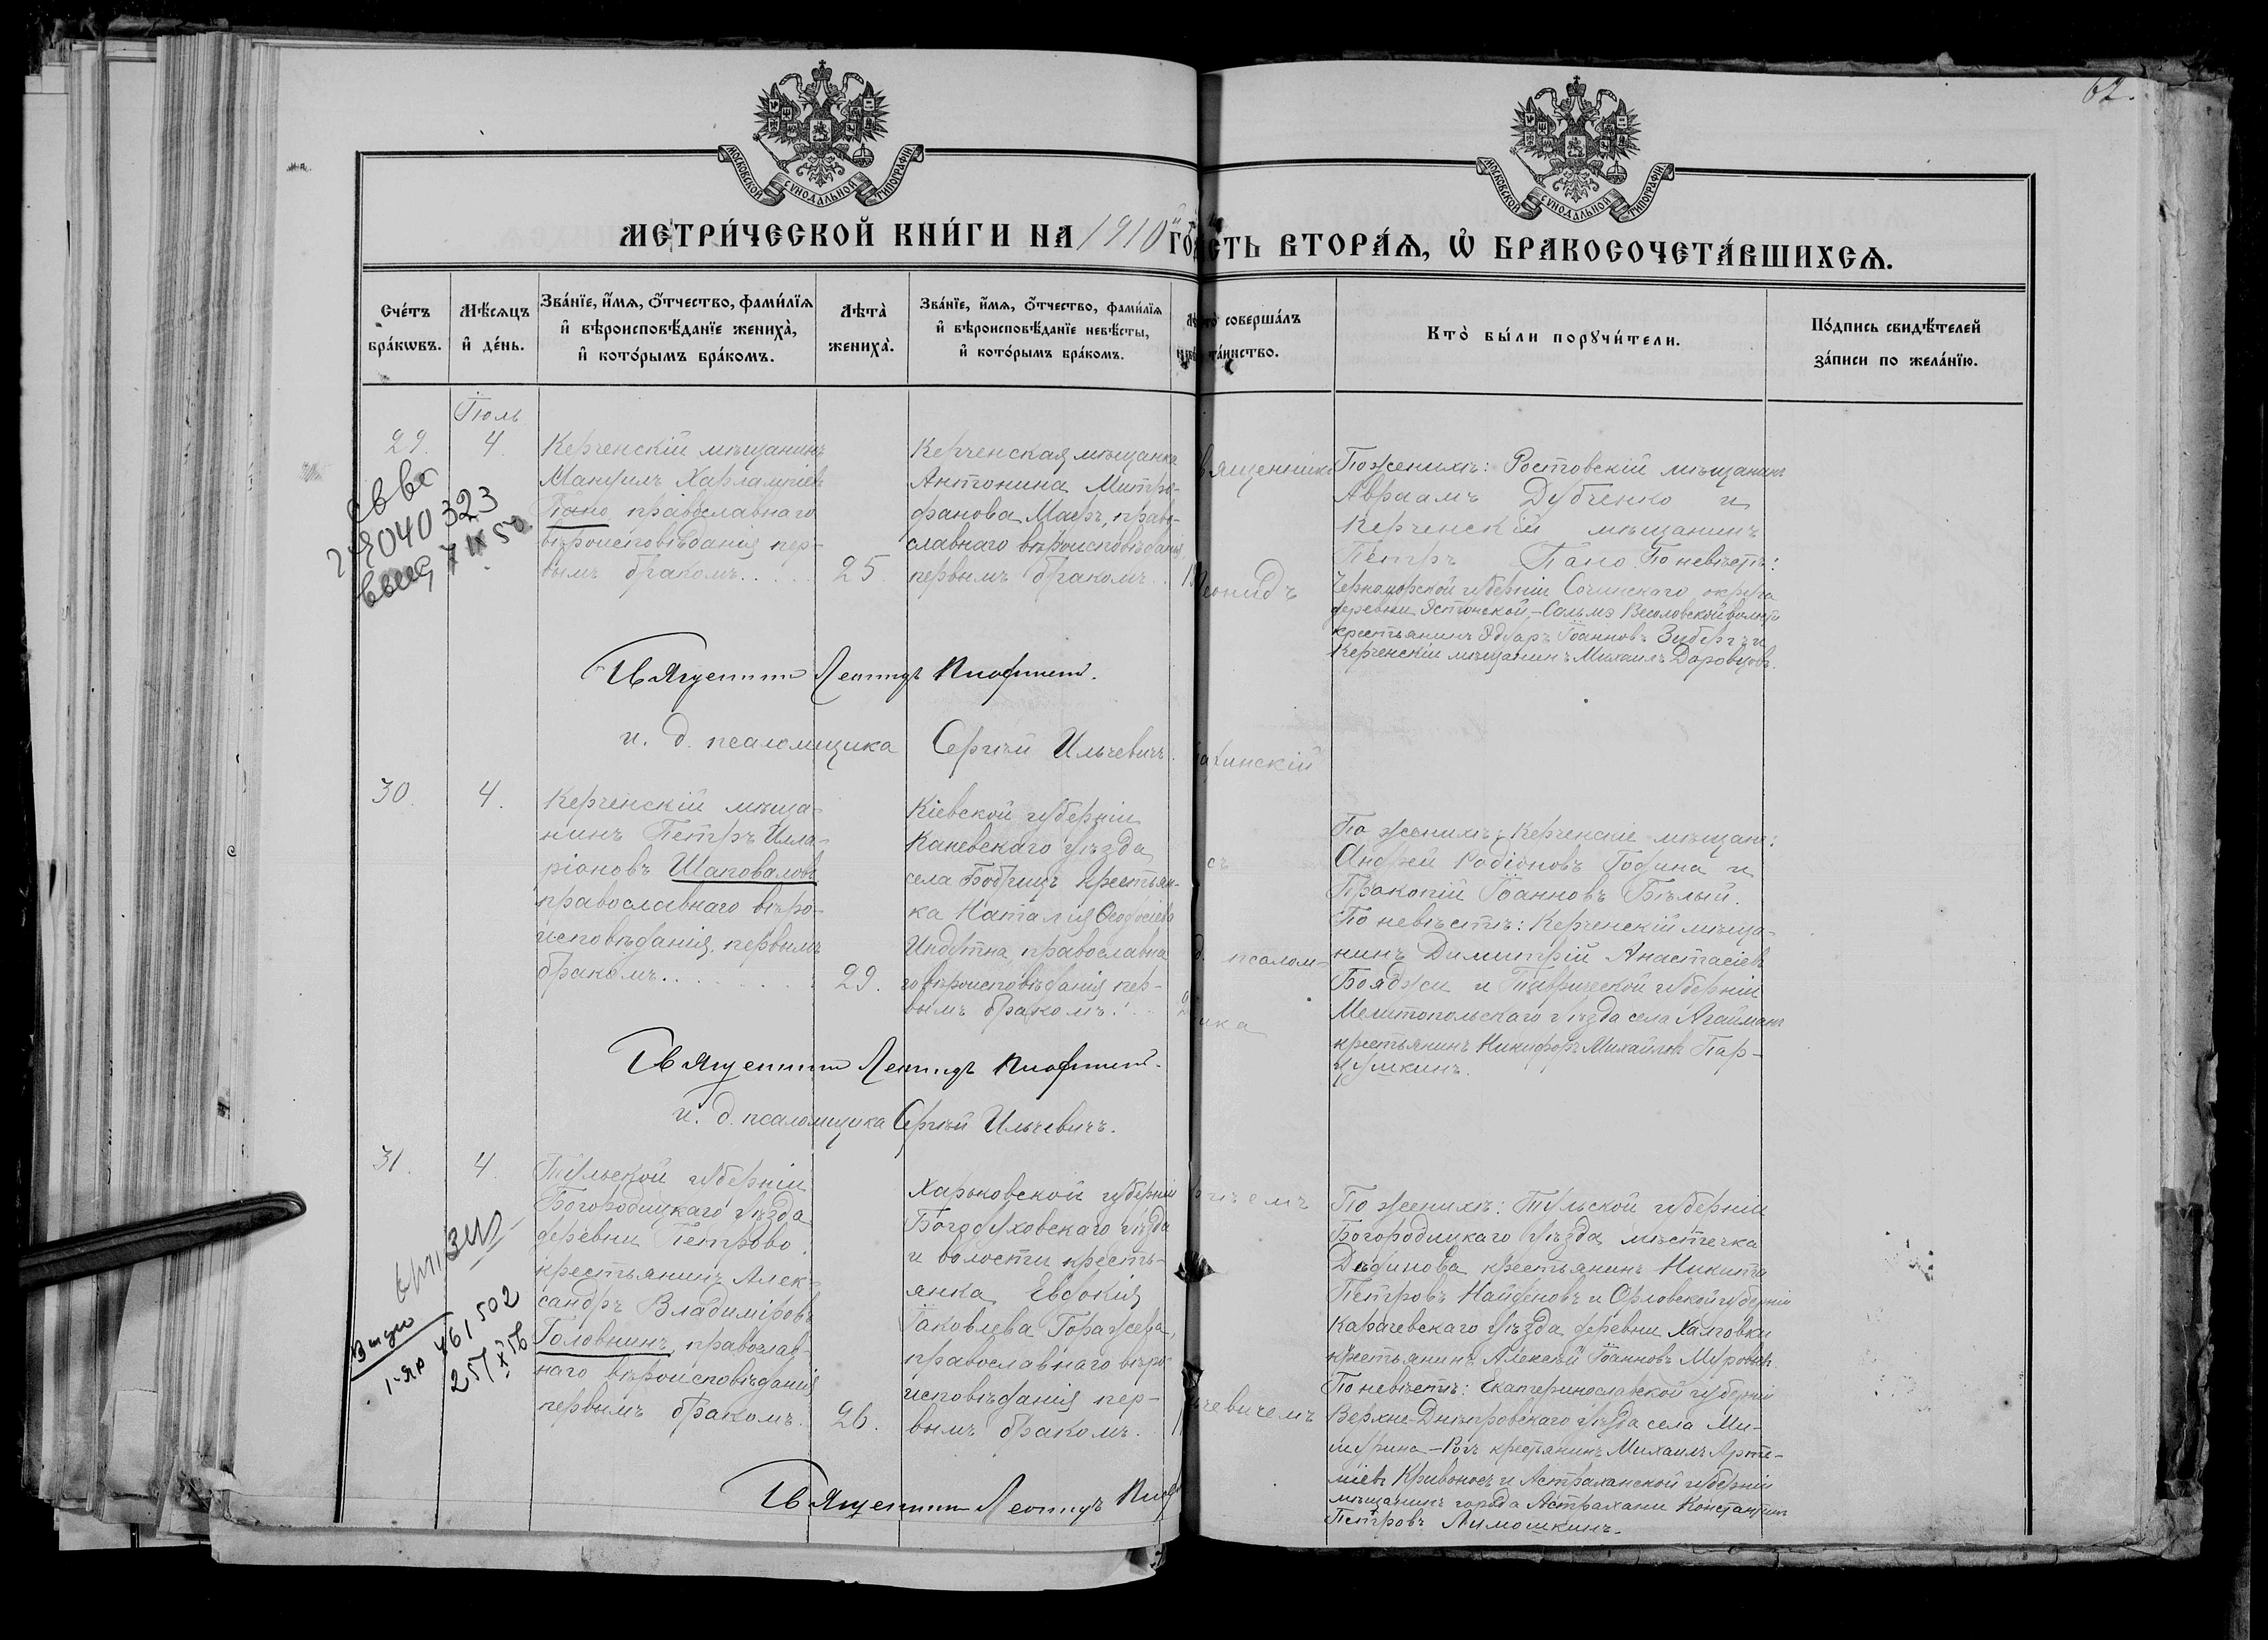 62.
МОСКОВСКОЙ СУНОДАЛЬНОЙ ТИПОГРАФІИ
МОСКОВСКОЙ СУНОДАЛЬНОЙ ТИПОГРАФІИ
МЕТРИ́ЧЕСКОЙ КНИ́ГИ НА 1910й ГО
СТЬ ВТОРА́Я, Ѡ БРАКОСОЧЕТА́ВШИХСЯ.
Сче́тъ
бра́кѡвъ.
Мѣ́сяцъ
и҆ де́нь.
Зва́нїе, и҆́мя, о҆́тчество, фами́лїя
и҆ вѣроисповѣ́данїе жениха̀,
и҆ кото́рымъ бра́комъ.
Лѣта̀
жениха̀.
Зва́нїе, и҆́мя, о҆́тчество, фами́лїя
и҆ вѣроисповѣ́данїе невѣ́сты,
и҆ кото́рымъ бра́комъ.
то̀ соверша́лъ
та́инство.
Кто̀ бы́ли порꙋчи́тели.
По́дпись свидѣ́телей
за́писи по жела́нїю.
Іюль
29.
4.
Керченскій мѣщанинъ
Мануилъ Харлампіевъ
Пано, православнаго
вѣроисповѣданія пер-
вымъ бракомъ.....
25.
Керченская мѣщанка
Антонина Митро-
фанова Маеръ, право-
славнаго вѣроисповѣданія,
первымъ бракомъ..
вященник
еонидъ
По женихѣ: Ростовскій мѣщанинъ
Авраамъ Дубченко и
Керченскій мѣщанинъ
Петръ Пано. По невѣстѣ:
Черноморской губерніи Сочинскаго округа
деревни Эстонской,-Сальмэ Веселовской волости
крестьянинъ Эдуаръ Іоанновъ Зибергъ и
Керченскій мѣщанинъ Михаилъ Доровцовъ.
040 323
Священник Леонидъ
и. д. псаломщика Сергѣй Ильчевичъ.
инскій
30.
4.
Керченскій мѣща-
нинъ Петръ Илла-
ріоновъ Шаповаловъ
православнаго вѣро-
исповѣданія, первымъ
бракомъ.........
29.
Кіевской губерніи
Каневскаго уѣзда
села Бобрицъ крестьян-
ка Наталія Ѳеодосіева
православна
го вѣроисповѣданія пер-
вымъ бракомъ...
съ
д. псалом-
ика
По женихѣ: Керченскіе мѣщане:
Андрей Родіоновъ Година и
Прокопій Іоанновъ Бѣлый.
По невѣстѣ: Керченскій мѣща-
нинъ Димитрій Анастасіевъ
Бояджи и Таврической губерніи
Мелитопольскаго уѣзда села Агайманъ
крестьянинъ Никифоръ Михайловъ Пар-
Священник Леонидъ
и. д. псаломщика Сергѣй Ильчевичъ.
31.
4.
Тульской губерніи
Богородицкаго уѣзда
деревни Петрово
крестьянинъ Алек-
сандръ Владиміровъ
Головнинъ, православ-
наго вѣроисповѣданія
первымъ бракомъ.
26.
Харьковской губерніи
Богодуховскаго уѣзда
и волости кресть-
янка Евдокія
Іаковлева Горажеева,
православнаго вѣро-
исповѣданія пер-
вымъ бракомъ.
ѣемъ
чевичемъ
По женихѣ: Тульской губерніи
Богородицкаго уѣзда, мѣстечка
Дѣдинова крестьянинъ Никита
Петровъ Найденовъ и Орловской губерніи
Карачевскаго уѣзда деревни
крестьянинъ Алексѣй Іоанновъ
По невѣстѣ: Екатеринославской губерніи
Верхне-Днѣпровскаго уѣзда села Ми-
шурина-Рогъ крестьянинъ Михаилъ Арте-
міевъ Кривоносъ и Астраханской губерніи
мѣщанинъ города Астрахани Константинъ
Петровъ Лимошкинъ.
461,502
Священник Леонидъ